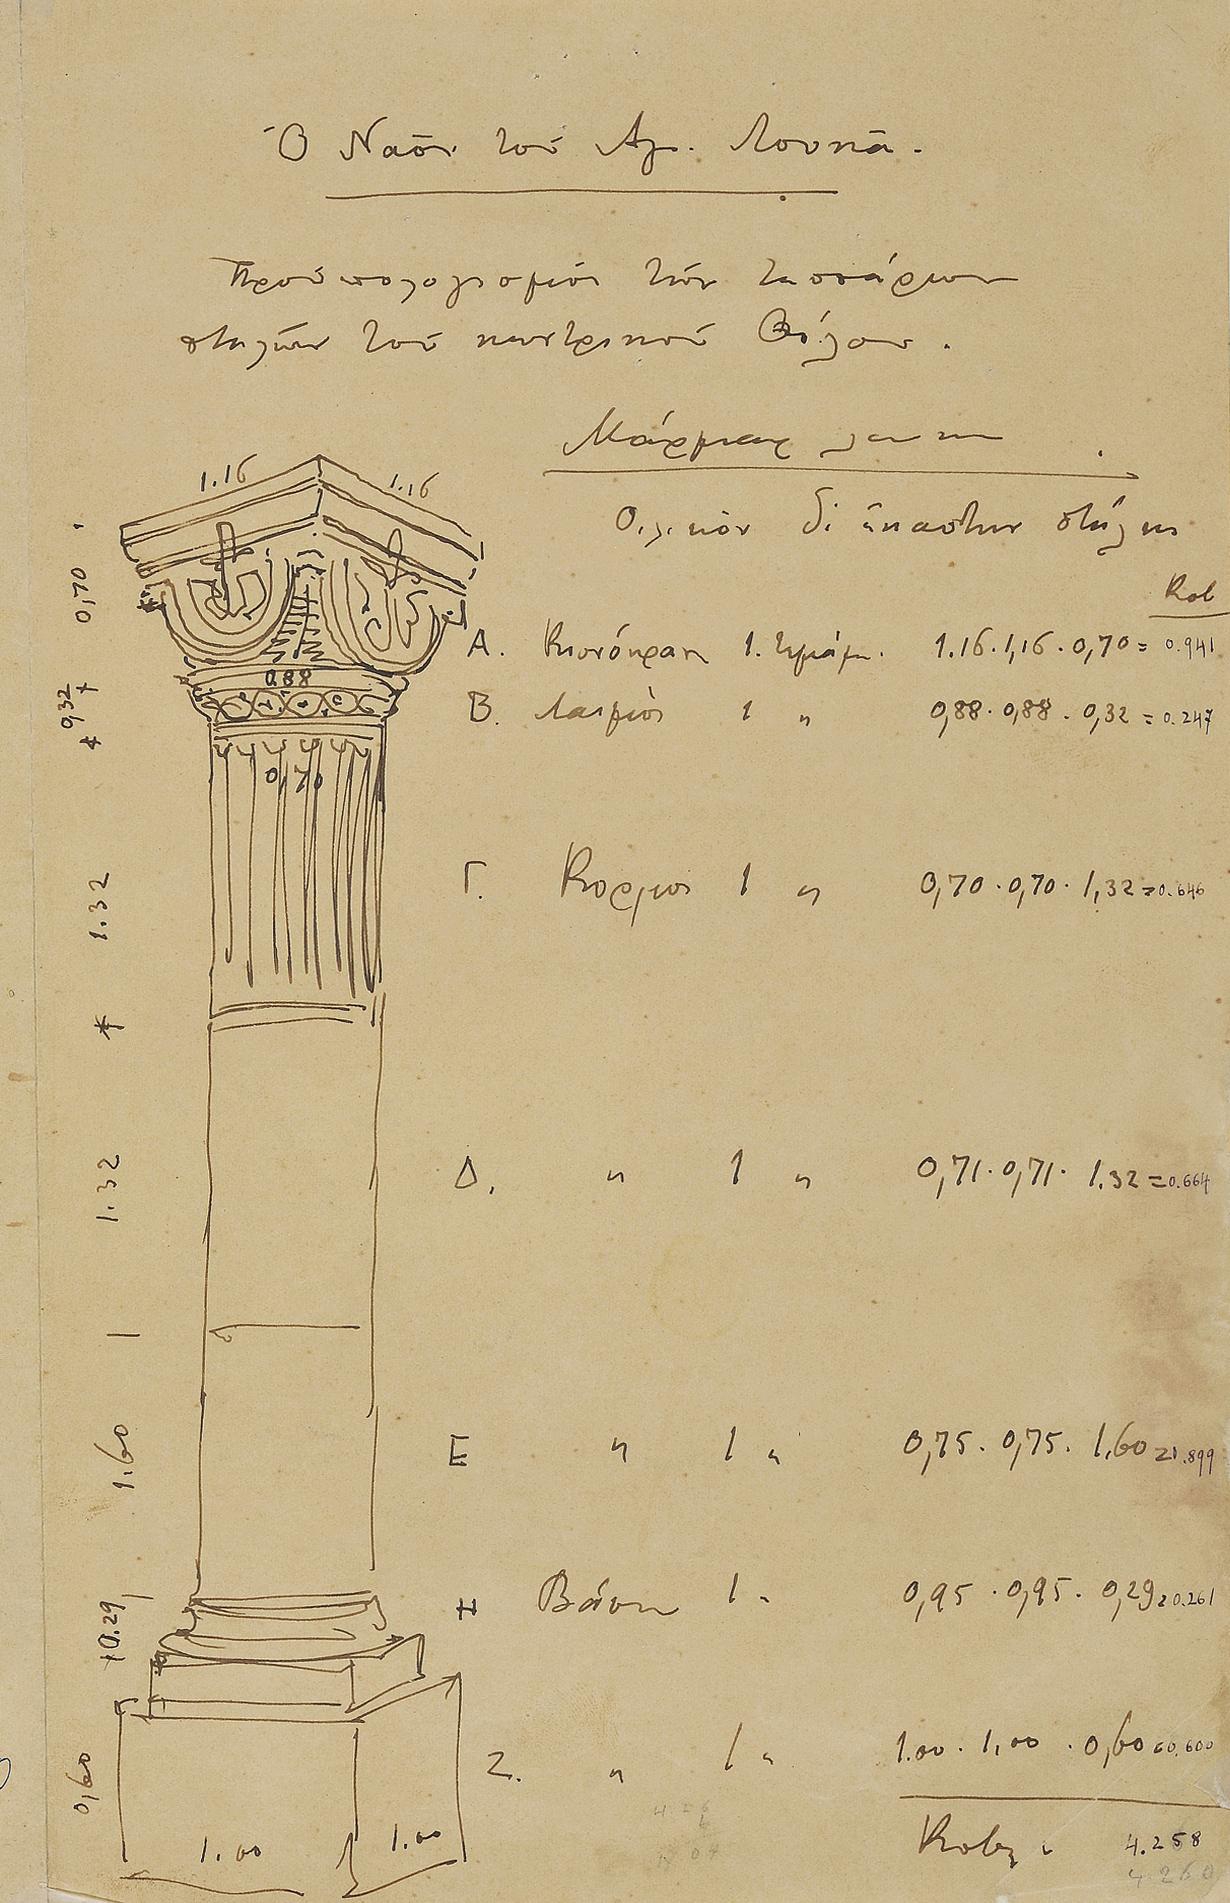 Ὁ Ναὸς τοῦ Ἁγ. Λουκᾶ.
Προϋπολογισμὸς τῶν τεσσάρων
στηλῶν τοῦ κεντρικοῦ Θόλου.
Μάρμαρ λευκ
Ὁλικὸν δι ἑκάστην στήλην
Κυβ
1.16
1.16
0,70
Α. Κιονόκρανον 1. τμῆμα. 1.16·1,16·0,70= 0.941
0,32
0.88
Β. Λαιμὸς 1 " 0,88·0,88·0,32 = 0.247
0,70
1.32
Γ. Κορμος 1 " 0,70·0,70·1,32=0.646
1.32
Δ. " 1 " 0,71·0,71·1.32=0.664
1.60
Ε " 1 " 0,75·0,75·1,60=1.899
0.29
Η Βάσις 1 " 0,95·0,95·0,29=0.261
0,60
Ζ. " 1 " 1.00·1,00·0,60=0.600
1.00
1.00
Κυβ 4.258
4.260